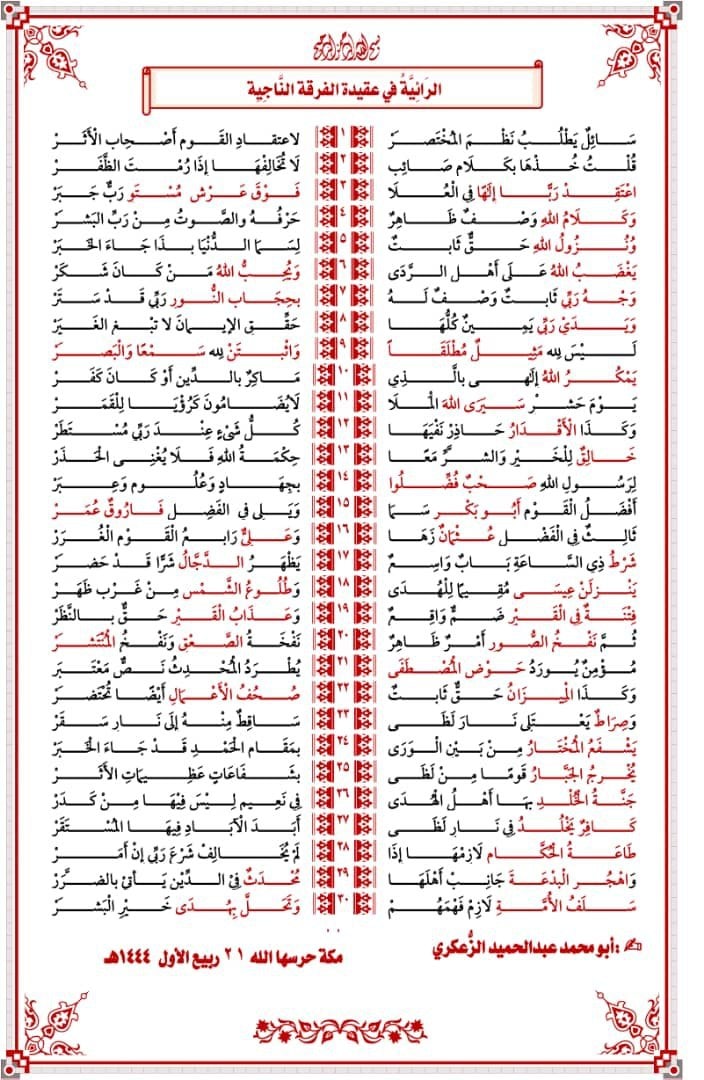 بسم الله الرحمن الرحيم
الرَائِيَّةُ في عقيدة الفرقة النَّاجِية
سَائِلٌ يَطْلُبُ نَظْمَ المُخْتَصَرْ ١ لاعتقادِ القَوم أَصْحابِ الأَثَرْ
قُلْتُ خُذْهَا بكَلَام صَائِب ٢ لَا تُخَالِفْهَا إذَا رُمْتَ الظَّفَرْ
اعْتَقِدْ رَبًّا إلَهًا فِي العُلَا ٣ فَوْقَ عَرْش مُسْتَو رَبٌّ جَبَرْ
وَكَلَامُ اللهِ وَصْفٌ ظَاهِرٌ ٤ حَرْفُهُ والصَّوتُ مِنْ رَبِّ البَشَرْ
وَنُزُولُ اللهِ حَقٌّ ثَابتٌ ٥ لِسَمَا الدُّنْيَا بذَا جَاءَ الخَبَرْ
يَغْضَبُ اللهُ عَلَى أَهْلِ الرَّدَى ٦ وَيُحِبُّ اللهُ مَنْ كَانَ شَكَرْ
وَجْهُ رَبِّي ثَابتٌ وَصْفٌ لَهُ ٧ بحِجَابِ النُّورِ رَبِّي قَدْ سَتَرْ
وَيَدَيْ رَبِّي يَمِينٌ كُلُّهَا ٨ حَقِّقِ الإيمَانَ لا تَبْغ الغَيَرْ
لَيْسَ لِله مَثِيلٌ مُطْلَقَاً ٩ وَاثْبتَنْ لِله سَمْعًا وَالْبَصَرْ
يَمْكُرُ اللهُ إلَهي بالَّذِي ١٠ مَاكِرٌ بالدِّينِ أَوْ كَانَ كَفَرْ
يَوْمَ حَشْرٍ سَيَرَى اللهَ المَلَا ١١ لَايُضَامُونَ كَرُؤْيَا لِلْقَمَرْ
وَكَذَا الْأَقْدَارُ حَاذِرْ نَفْيَهَا ١٢ كُلُّ شَيْءٍ عِنْدَ رَبِّي مُسْتَطَرْ
خَالِقٌ لِلْخَيْرِ وَالشرِّ مَعًا ١٣ حِكْمَةُ اللهِ فَلَا يُغْنِي الحَذَرْ
لِرَسُولِ اللهِ صَحْبٌ فُضِّلُوا ١٤ بجِهَادٍ وَعُلُومٍ وَعِبَرْ
أَفْضَلُ القَوْمِ أَبُو بَكْرٍ سَمَا ١٥ وَيَلِي فِي الفَضْلِ فَارُوقٌ عُمَرْ
ثَالِثٌ فِي الْفَضْلِ عُثْمَانٌ زَهَا ١٦ وَعَلِيٌّ رَابِعُ القَوْمِ الغُرَرْ
شَرْطُ ذِي السَّاعَةِ بَابٌ وَاسِعٌ ١٧ يَظْهَرُ الدَّجَّالُ شَرًّا قَدْ حَضَرْ
يَنْزِلَنْ عِيسَى مُقِيمًا لِلْهُدَى ١٨ وَطُلُوعُ الشَّمْسِ مِنْ غَرْبٍ ظَهَرْ
فِتْنَةٌ فِي القَبْرِ ضَمٌّ وَاقِعٌ ١٩ وَعَذَابُ القَبْرِ حَقٌّ بالنَّظَرْ
ثُمَّ نَفْخُ الصُّورِ أَمْرٌ ظَاهِرٌ ٢٠ نَفْخَةُ الصَّعْقِ وَنَفْخُ المُنْتَشَرْ
مُؤْمِنٌ يُورَدُ حَوْضَ المُصْطَفَى ٢١ يُطْرَدُ المُحْدِثُ نَصٌّ مَعْتَبَرْ
وَكَذَا المِيزَانُ حَقٌّ ثَابتٌ ٢٢ صُحُفُ الْأَعْمَالِ أَيْضًا تُحْتَضَرْ
وَصِرَاطٌ يَعْتَلِي نَارَ لَظَى ٢٣ سَاقِطٌ مِنْهُ إلَى نَارِ سَقَرْ
يَشْفَعُ المُخْتَارُ مِنْ بَيْنِ الْوَرَى ٢٤ بمَقَامِ الحَمْدِ قَدْ جَاءَ الخَبَرْ
يُخْرِجُ الجَبَّارُ قَومًا مِنْ لَظَى ٢٥ بشَفَاعَاتٍ عَظِيمَاتِ الأَثَرْ
جَنَّةُ الْخُلْدِ بهَا أَهْلُ الهُدَى ٢٦ فِي نَعِيمٍ لِيْسَ فِيْهَا مِنْ كَدَرْ
كَافِرٌ يَخْلُدُ فِي نَارِ لَظَى ٢٧ أَبَدَ الْآبَادِ فِيهَا المُسْتَقَرْ
طَاعَةُ الْحُكَّامِ لَازِمْهَا إذَا ٢٨ لَمْ يُخَالِفْ شَرْعَ رَبِّي إنْ أَمَرْ
وَاهْجُرِ الْبدْعَةَ جَانِبْ أَهْلَهَا ٢٩ مُحْدَثٌ فِي الدِّيْنِ يَأتي بالضَّرَرْ
سَلَفُ الأُمَّةِ لَازِمْ فَهْمَهُمْ ٣٠ وَتَحَلَّ بهُدَى خَيْرِ الْبَشَرْ
✍ :أبو محمد عبدالحميد الزُّعكري
مكة حرسها الله ٢١ ربيع الأول ١٤٤٤هـ